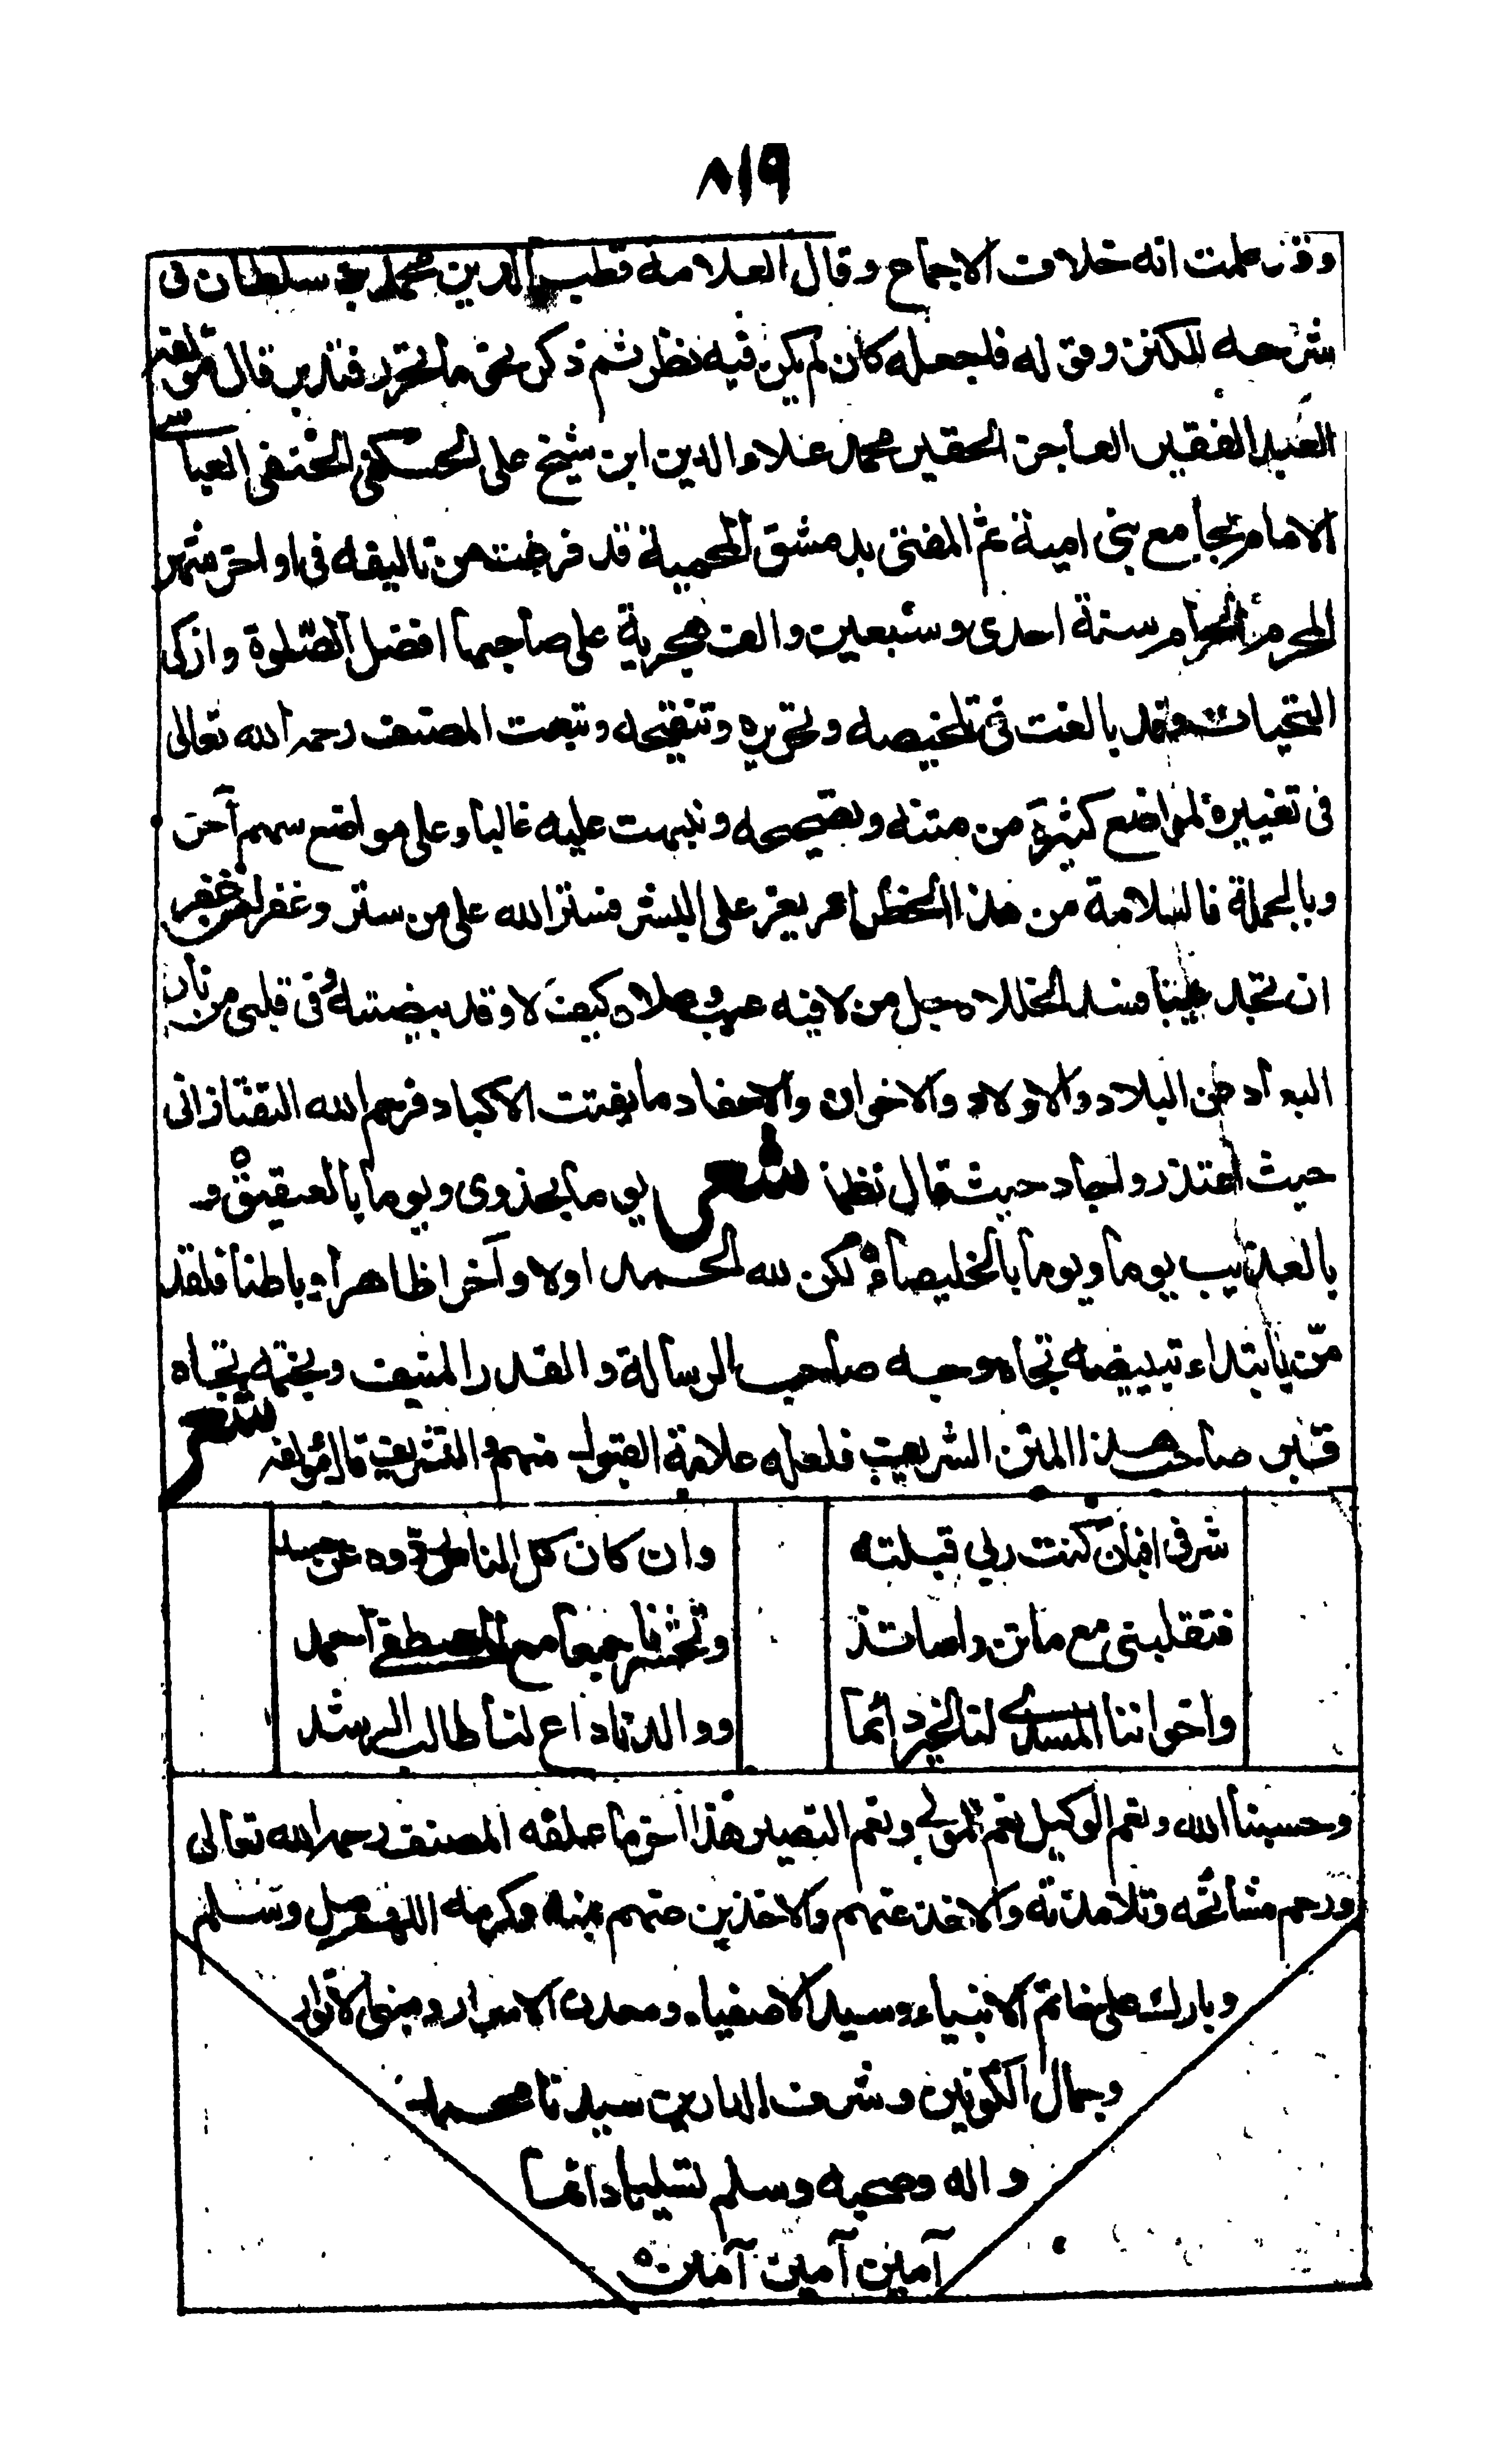 ٨١٩
وقد علمت انه خلاف الاجماع وقال العلامة قطب الدين محمد بن سلطان فى
شرحه للكنز وفق له فلجعله كان لم يكن فيه نظر ثم ذكر نحو ما تحرر فتدبر قال مؤلفه
العبد الفقير العاجز الحقير محمد علاء الدين ابن شيخ على الحسكفى الحنفى العباسى
الامام بجامع بنى امية ثم المفتى بدمشق المحمية قد فرغت من تاليفه فى اواخر شهر
المحرم الحرام سنة احدى وسبعين والف هجرية على صاحبها افضل الصلوة وازكى
التحيات وقد بالغت فى تلخيصه وتحريره وتنقيحه وتبعت المصنف رحمه الله تعالى
فى تغييره لمواضع كثيرة من متنه وتصحيحه ونبهت عليه غالبا وعلى مواضع سهم آخر
وبالجملة فالسلامة من هذا الخطر امر يعز على البشر فستر الله على من ستر وغفر لمن غفر
ان تجد عيبا فسد الخللا ه جل من لا فيه عيب وعلا ه كيف لا وقد بيضته وفى قلبى من نار
البعاد عن البلاد والاولاد والاخوان والاحفاد ما يفتت الاكباد فرحم الله التفتازانى
حيث اعتذر واجاد حيث قال نظما شعر يوما بحذوى ويوما بالعقيق و
بالعذيب يوما ويوما بالخليصاء ه لكن لله الحمد اولا وآخرا ظاهرا وباطنا فلقد
منّ بابتداء تبييضه تجاه وجه صاحب الرسالة والقدر المنيف وبختمه تجاه
قبر صاحب هذا المتن الشريف فلعله علامة القبول منهم والتشريف قال مؤلفه شعر
شرفى افان كنت ربى قبلته وان كان كل الناس ردوه عن حسد
فتقبلنى مع ماتن واساتذ وتحشرنا جميعا مع المصطفى احمد
واخواننا المسدى لنا الخير دائما ووالدنا داع لنا طالب الرشد
وحسبنا الله ونعم الوكيل نعم المولى ونعم النصير هذا آخر ما علقه المصنف رحمه الله تعالى
ورحم مشائخه وتلامذته والاخذ عنهم والاخذين منهم بمنه وكرمه اللهم صل وسلم
وبارك على خاتم الانبياء وسيد الاصفياء ومعدن الاسرار ومنبع الانوار
وجمال الكونين وشرف الدارين سيدنا محمد
واله وصحبه وسلم تسليما دائما
آمين آمين آمين ه